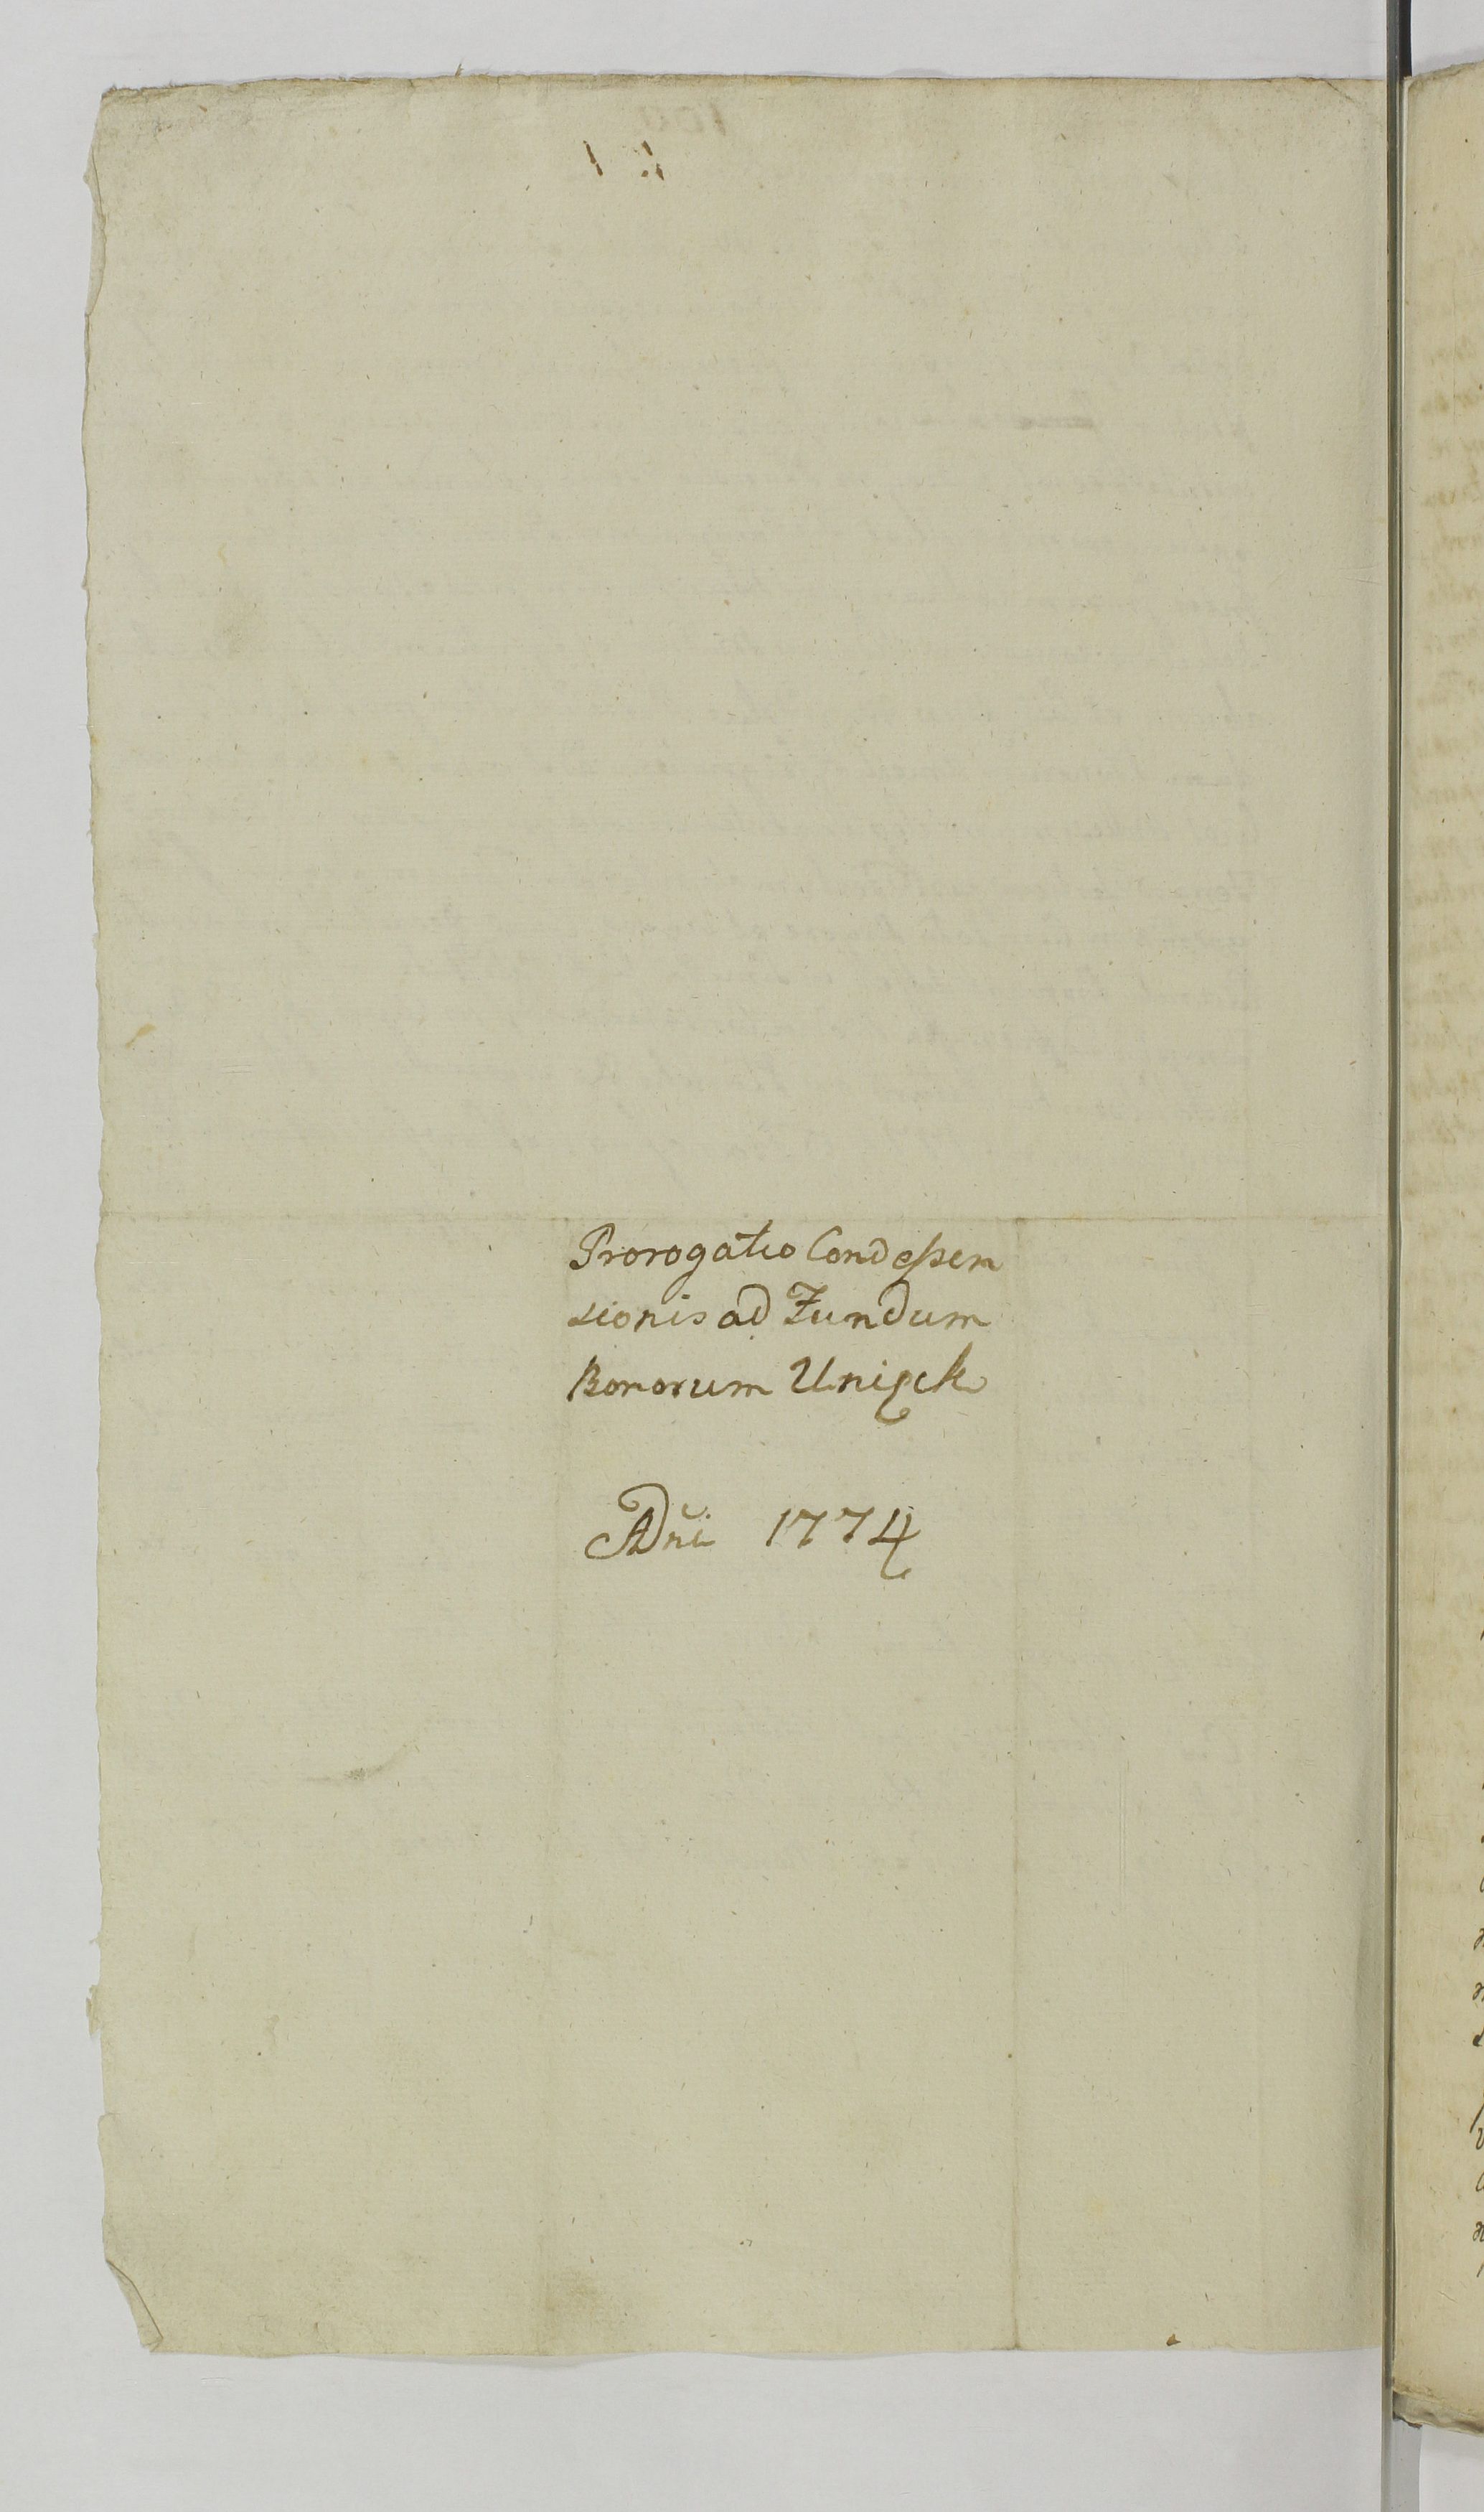 Prorogatio Condeßen
sionis ad Fundum
Bonorum Unięck
ADni 1774